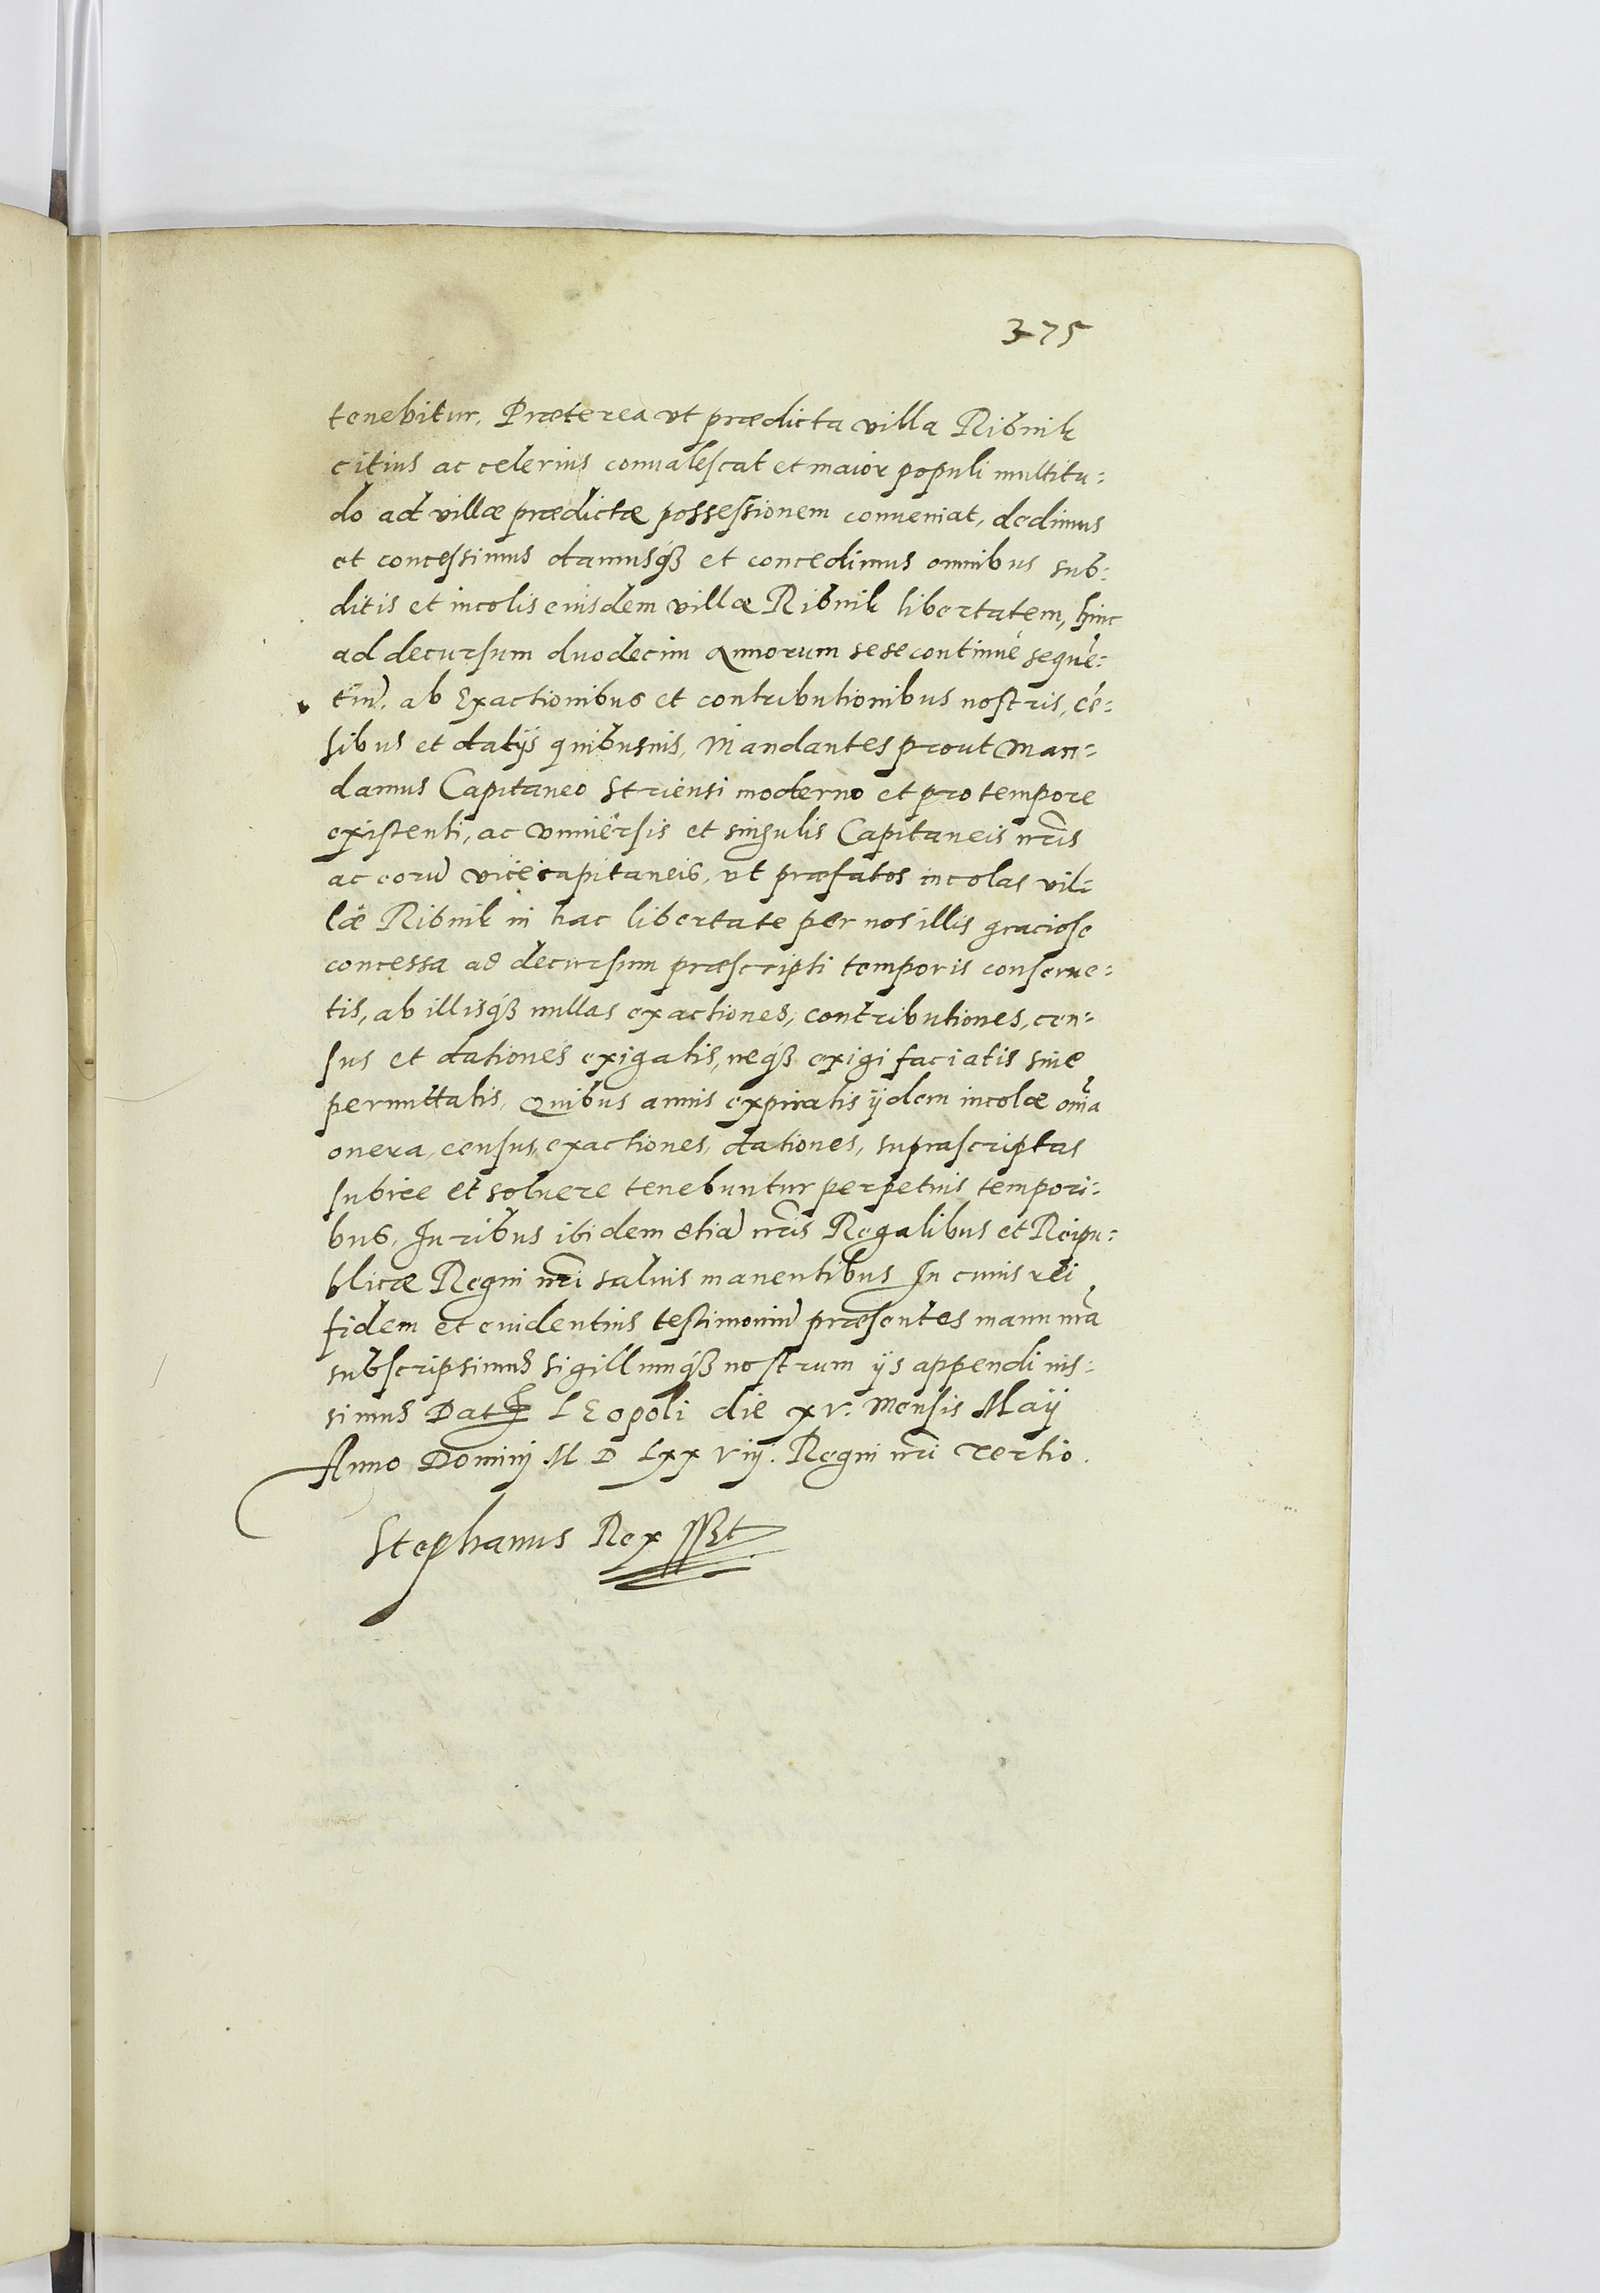 375
tenebitur. Præterea vt prædicta villa Ribnik
citius ac celerius conualescat et maior populi multitu:
do ad villæ prædictæ possessionem conueniat, dedimus
et concessimus damusq₃ et concedimus omnibus sub:
ditis et incolis eiusdem villæ Ribnik libertatem, hinc
ad decursum duodecim Annorum sese continuè sequē:
tiū. ab Exactionibus et contributionibus nostris, cē:
sibus et datijs quibusuis. Mandantes prout Man:
damus Capitaneo Striensi moderno et pro tempore
existenti, ac vniuersis et singulis Capitaneis nr̃is
ac eorū vicecapitaneis, vt præfatos incolas vil:
læ Ribnik in hac libertate per nos illis graciose
concessa ad decursum præscripti temporis conserue:
tis, ab illisq₃ nullas exactiones, contributiones, cen:
sus et dationes exigatis, neq₃ exigi faciatis siue
permittatis. Quibus annis expiratis ijdem incolæ om̃ia
onera, census, exactiones, dationes, suprascriptas
subire et soluere tenebuntur perpetuis tempori:
bus. Iuribus itidem etiā nr̃is Regalibus et Reipu:
blicæ Regni nr̃i saluis manentibus In cuius rei
fidem et euidentius testimoniū præsentes manu nr̃a
subscripsimus sigillumq₃ nostrum ijs appendi ius:
simus Dat̃ LEopoli die xv. Mensis Maij
Anno Dominj M D Lxx viij. Regni nr̃i Tertio.
Stephanus Rex sszt